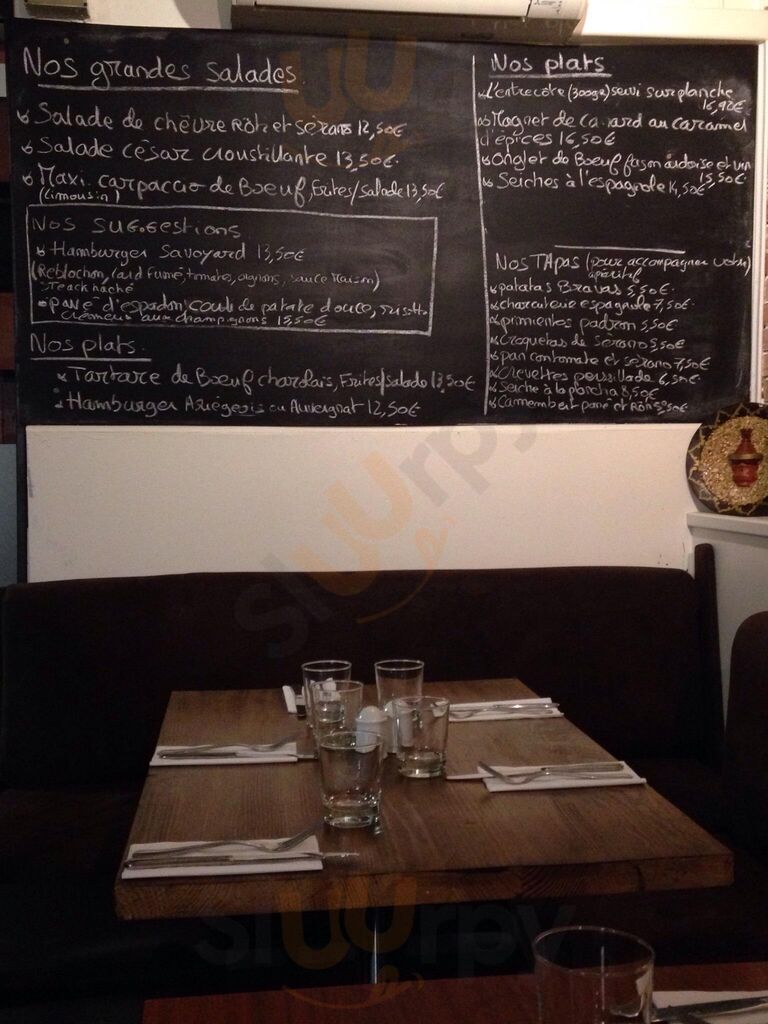 Nos grandes salades
Salade de chèvre Rôti et Sérano 12,50€
Salade césar croustillante 13,50€.
Maxi carpaccio de Boeuf, Frites/Salade 13,50€
(Limousin)
Nos suggestions
Hamburger Savoyard 13,50€
(Reblochon, lard fumé, tomates, oignons, sauce maison)
Steack haché
pavé d'espadon, coulis de patate douce, risotto
crémeux aux champignons 15,50€
Nos plats.
Tartare de Boeuf charolais, Frites/Salade 13,50€
Hamburger Ariégeois ou Auvergnat 12,50€
Nos plats
L'entrecôte (300gr) servi sur planche
16,90€
Magret de canard au caramel
d'épices 16,50€
Onglet de Boeuf façon ardoise et vin
15,50€.
Seiches à l'espagnole 14,50€
Nos TApas (pour accompagner votre)
apéritif
patatas Bravas 5,50€.
charcuterie espagnole 7,50€.
primientes padron 5,50€
Croquetas de Sérano 5,50€
pan contomate et sérano 7,50€
Crevettes persillade 6,50€
Seiche à la plancha 8,50€
Camembert pané et Rôti 5,50€
sluurpy
sluurpy